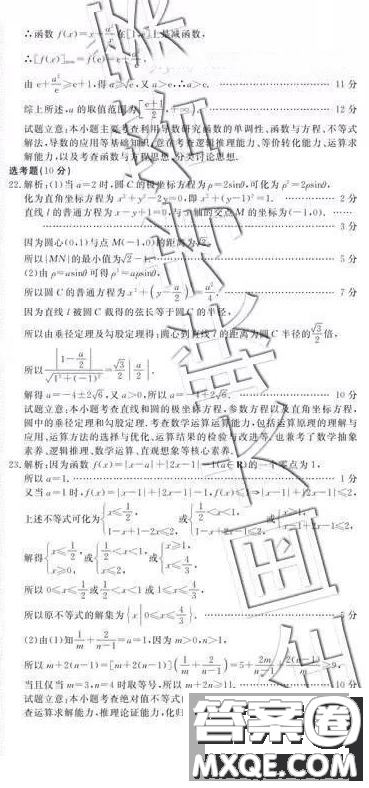 ∴函数 f(x)=x+a²/x在[1,e]上是减函数,
∴[f(x)]min=f(e)=e+a²/e.
由 e+a²/e≥e+1,得 a≥√e,又 a>e,∴a>e. 11 分
综上所述,a 的取值范围为[(e+1)/2,+∞). 12 分
试题立意:本小题主要考查利用导数研究函数的单调性,函数与方程,不等式
解法,导数的应用等基础知识;意在考查逻辑推理能力、等价转化能力、运算求
解能力,以及考查函数与方程思想、分类讨论思想.
选考题(10 分)
22.解析:(1)当 a=2 时,圆 C 的极坐标方程为 ρ=2sinθ,可化为 ρ²=2ρsinθ,
化为直角坐标方程为 x²+y²-2y=0,即 x²+(y-1)²=1. 2 分
直线 l 的普通方程为 x-y+1=0,与 x 轴的交点 M 的坐标为(-1,0).
3 分
因为圆心(0,1)与点 M(-1,0)的距离为√2,
所以|MN|的最小值为√2-1. 5 分
(2)由 ρ=asinθ 可得 ρ²=aρsinθ,
所以圆 C 的普通方程为 x²+(y-a/2)²=a²/4. 7 分
因为直线 l 被圆 C 截得的弦长等于圆 C 的半径,
所以由垂径定理及勾股定理得:圆心到直线 l 的距离为圆 C 半径的√3/2倍,
所以|1-a/2|/√(1²+(-1)²)=√3/2|a/2|.
解得 a=-4±2√6,又 a>0,所以 a=-4+2√6. 10 分
试题立意:本小题考查直线和圆的极坐标方程,参数方程以及直角坐标方程,
圆中的垂径定理和勾股定理.考查数学运算运算能力,包括运算原理的理解与
应用、运算方法的选择与优化、运算结果的检验与改进等.也兼考了数学抽象
素养、逻辑推理、数学运算、直观想象等核心素养.
23.解析:因为函数 f(x)=|x-a|+|2x-1|-1(a∈R)的一个零点为 1,
所以 a=1. 1 分
又当 a=1 时,f(x)=|x-1|+|2x-1|-1,f(x)≤1⇒|x-1|+|2x-1|≤2,
上述不等式可化为{x≤1/2, 1-x+1-2x≤2, 或{1/2<x<1, 1-x+2x-1≤2, 或{x≥1, x-1+2x-1≤2,
解得{x≤1/2, x≥0, 或{1/2<x<1, x≤2, 或{x≥1, x≤4/3,
所以 0≤x≤1/2或1/2<x<1 或 1≤x≤4/3,
所以原不等式的解集为{x|0≤x≤4/3}. 5 分
(2)由(1)知1/m+2/(n-1)=a=1,因为 m>0,n>1,
所以 m+2(n-1)=[m+2(n-1)](1/m+2/(n-1))=5+2m/(n-1)+2(n-1)/m≥9,
当且仅当 m=3,n=4 时取等号,所以 m+2n≥11. 10 分
试题立意:本小题考查绝对值不等式
查运算求解能力,推理论证能力,化归
答案卷
MXQE.COM